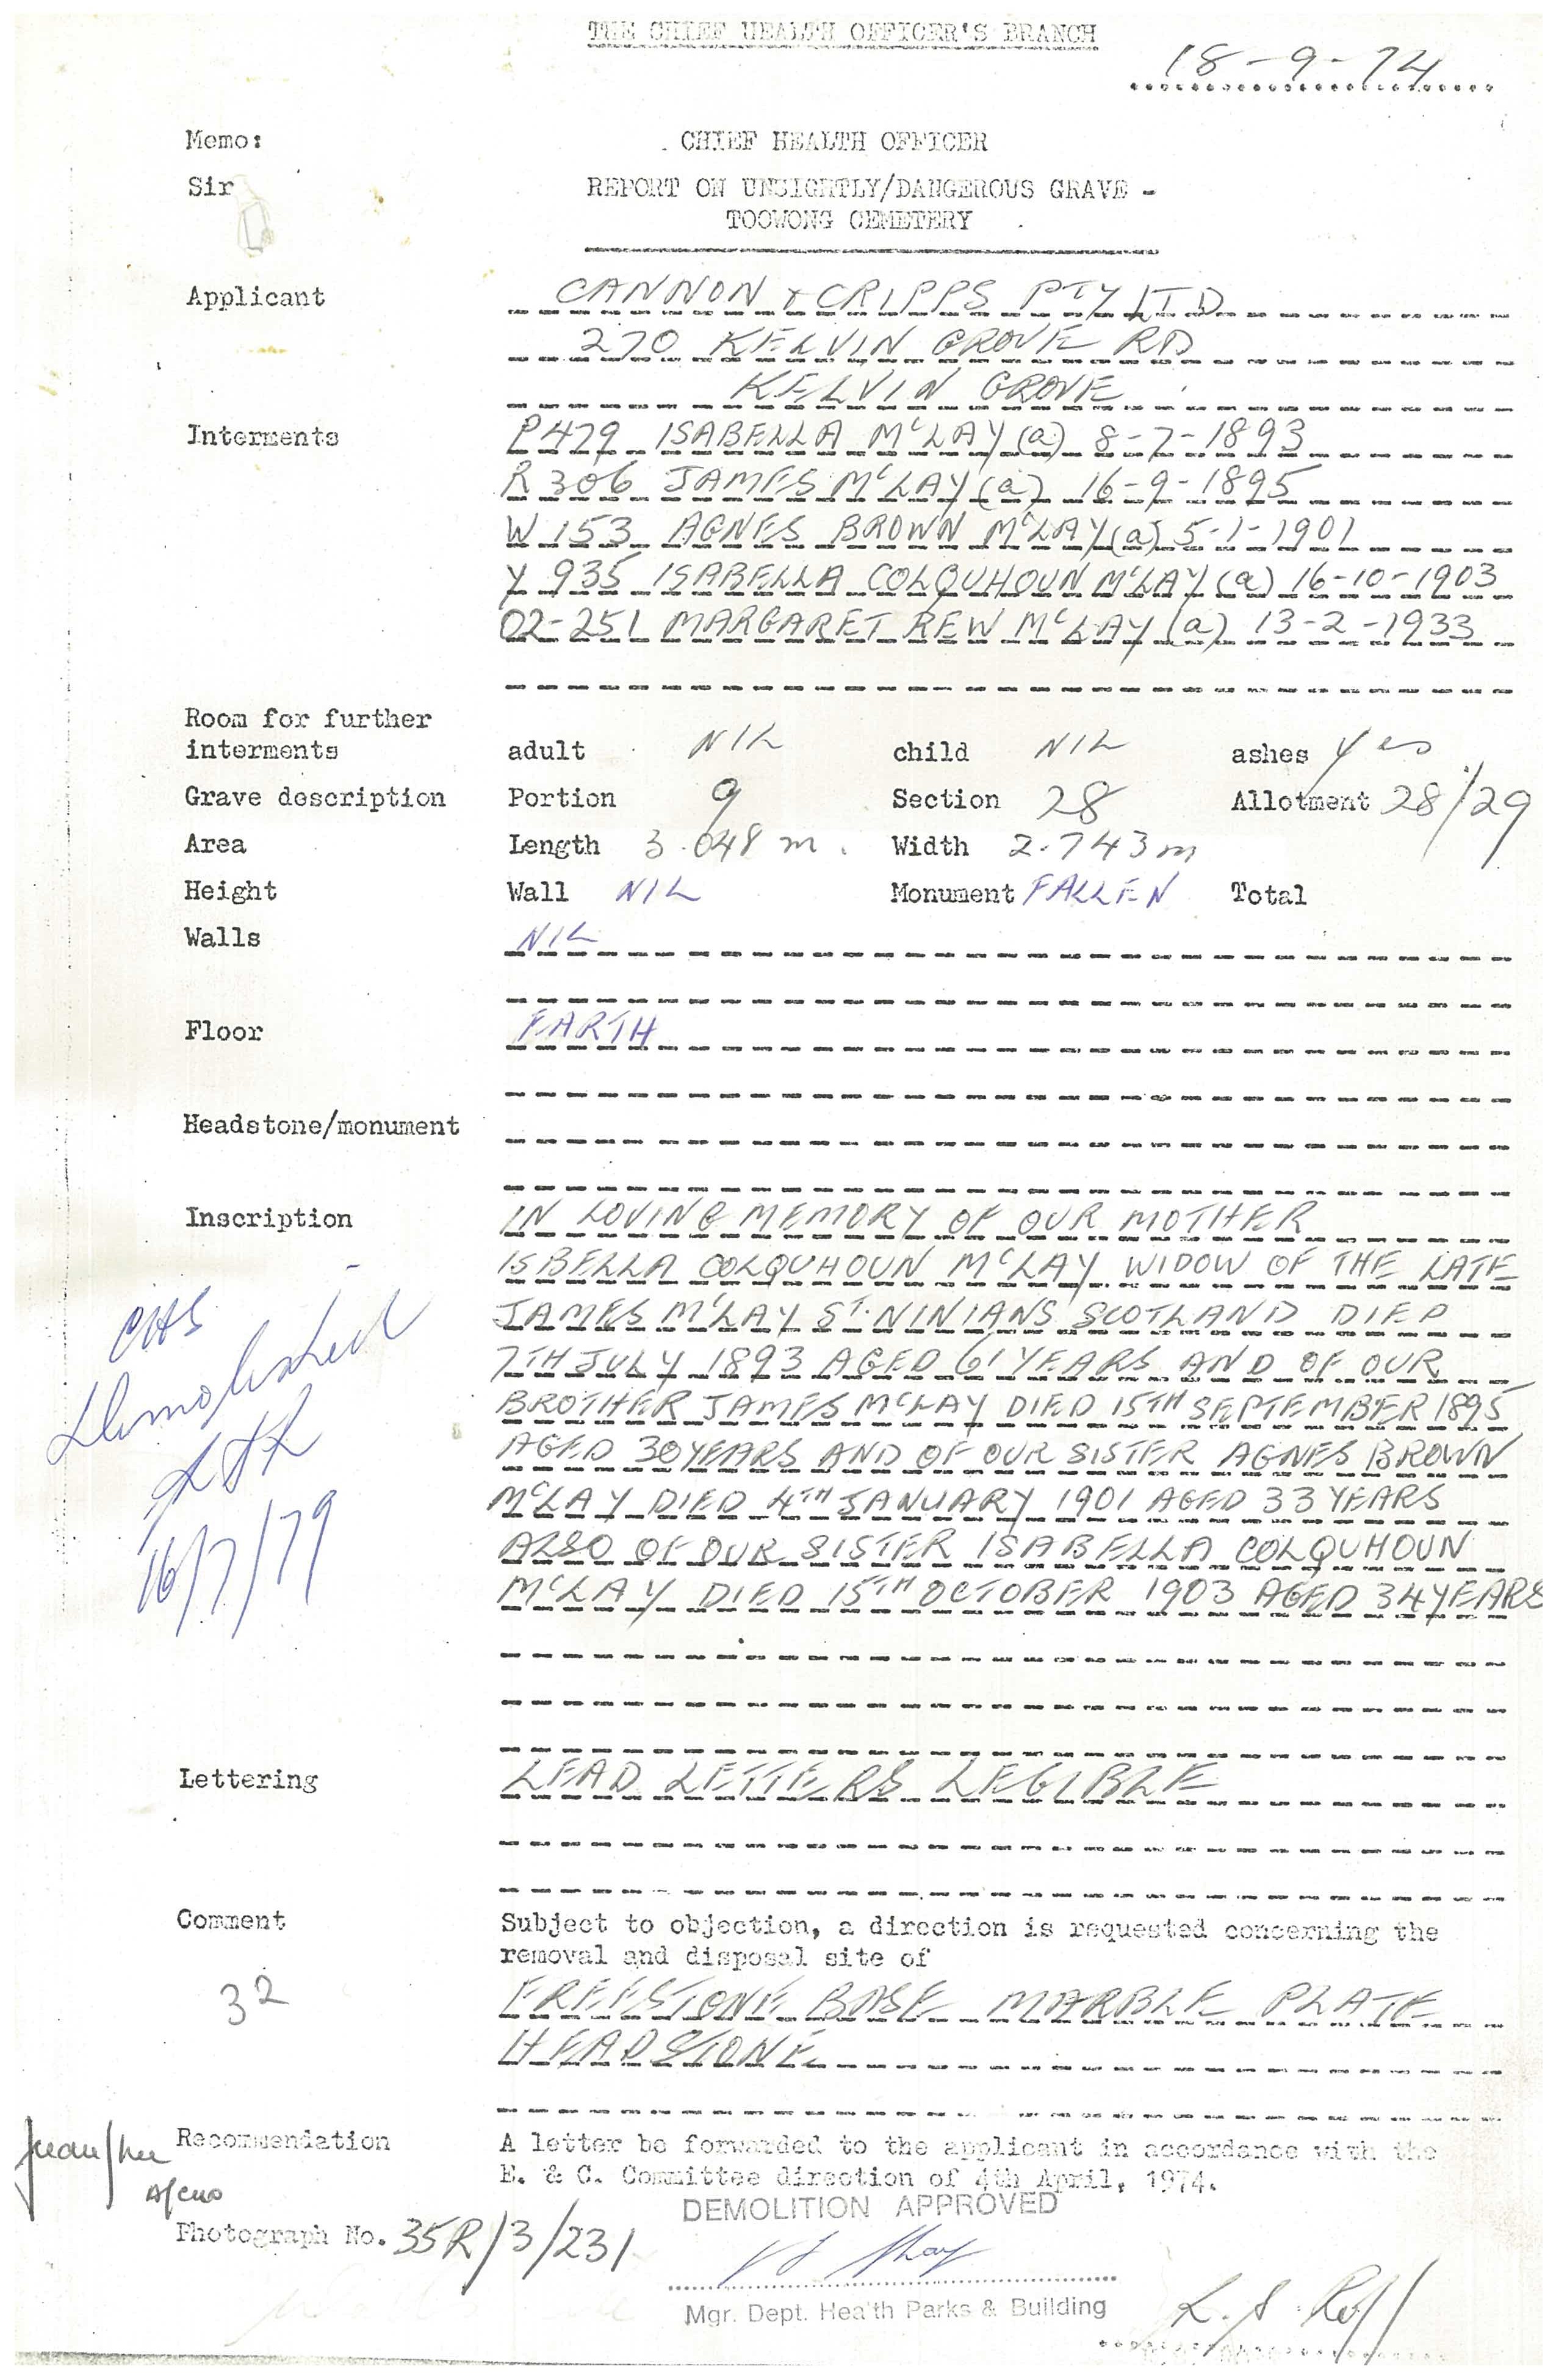 THE CHIEF HEALTH OFFICER'S BRANCH
18-9-74
Memo: CHIEF HEALTH OFFICER
Sir REPORT ON UNSIGHTLY/DANGEROUS GRAVE -
TOOWONG CEMETERY
Applicant CANNON & CRIPPS PTY LTD
270 KELVIN GROVE RD
KELVIN GROVE
Interments P479 ISABELLA McLAY (a) 8-7-1893
R306 JAMES McLAY (a) 16-9-1895
W 153 AGNES BROWN McLAY (a) 5-1-1901
Y 935 ISABELLA COLQUHOUN McLAY (a) 16-10-1903
02-251 MARGARET REW McLAY (a) 13-2-1933
Room for further
interments adult NIL child NIL ashes yes
Grave description Portion 9 Section 28 Allotment 28/29
Area Length 3.048 m. Width 2.743 m
Height Wall NIL Monument FALLEN Total
Walls NIL
Floor EARTH
Headstone/monument
Inscription IN LOVING MEMORY OF OUR MOTHER
ISBELLA COLQUHOUN McLAY WIDOW OF THE LATE
JAMES McLAY ST. NINIANS SCOTLAND DIED
7TH JULY 1893 AGED 61 YEARS AND OF OUR
BROTHER JAMES McLAY DIED 15TH SEPTEMBER 1895
AGED 30 YEARS AND OF OUR SISTER AGNES BROWN
McLAY DIED 4TH JANUARY 1901 AGED 33 YEARS
ALSO OF OUR SISTER ISABELLA COLQUHOUN
McLAY DIED 15TH OCTOBER 1903 AGED 34 YEARS
Demolished
16/7/79
Lettering LEAD LETTERS LEGIBLE
Comment Subject to objection, a direction is requested concerning the
removal and disposal site of
32 FREESTONE BASE MARBLE PLATE
HEADSTONE
Recommendation A letter be forwarded to the applicant in accordance with the
E. & C. Committee direction of 4th April, 1974.
DEMOLITION APPROVED
Photograph No. 35R/3/231
Mgr. Dept. Health Parks & Building